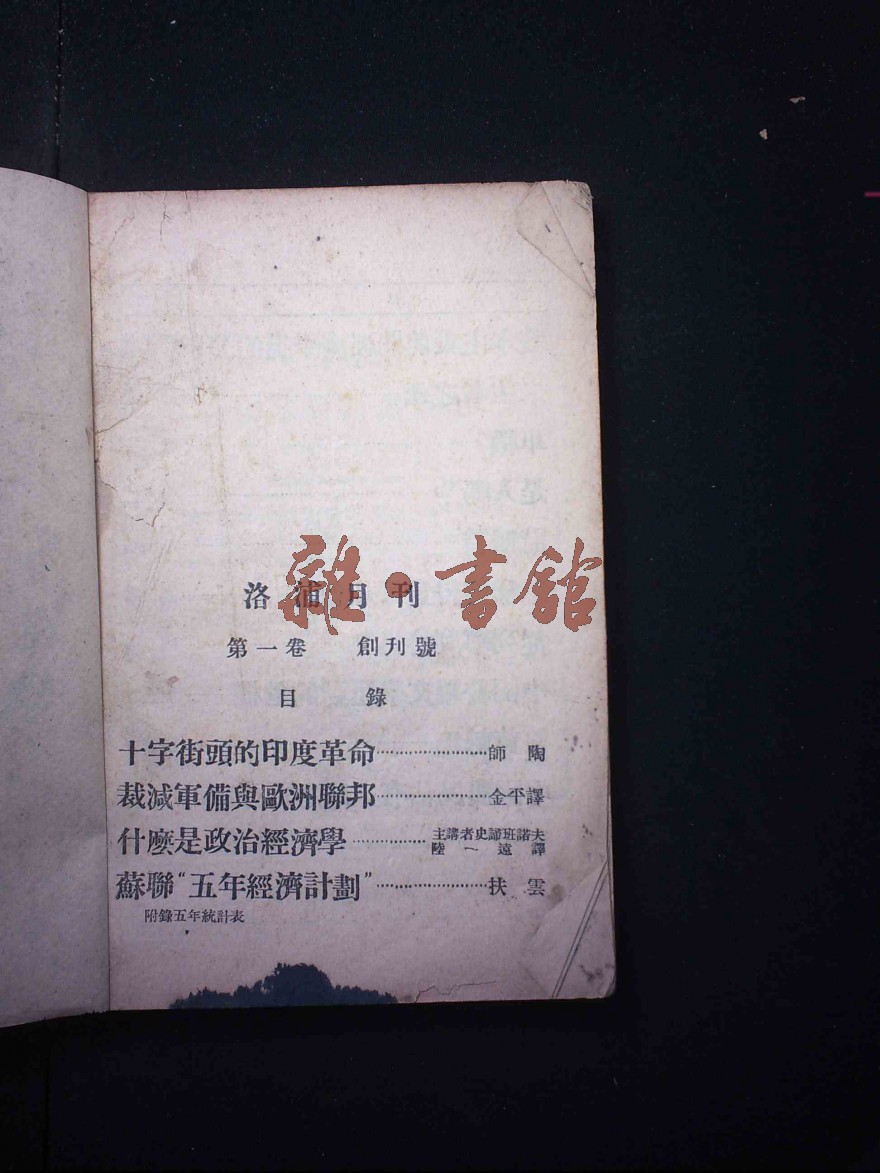 洛浦月刊
雜·書館
第一卷 創刊號
目錄
十字街頭的印度革命……………………師陶
裁減軍備與歐洲聯邦……………………金平譯
什麽是政治經濟學……………主講者史諦班諾夫
陸一遠譯
蘇聯“五年經濟計劃”……………………扶雲
附錄五年統計表